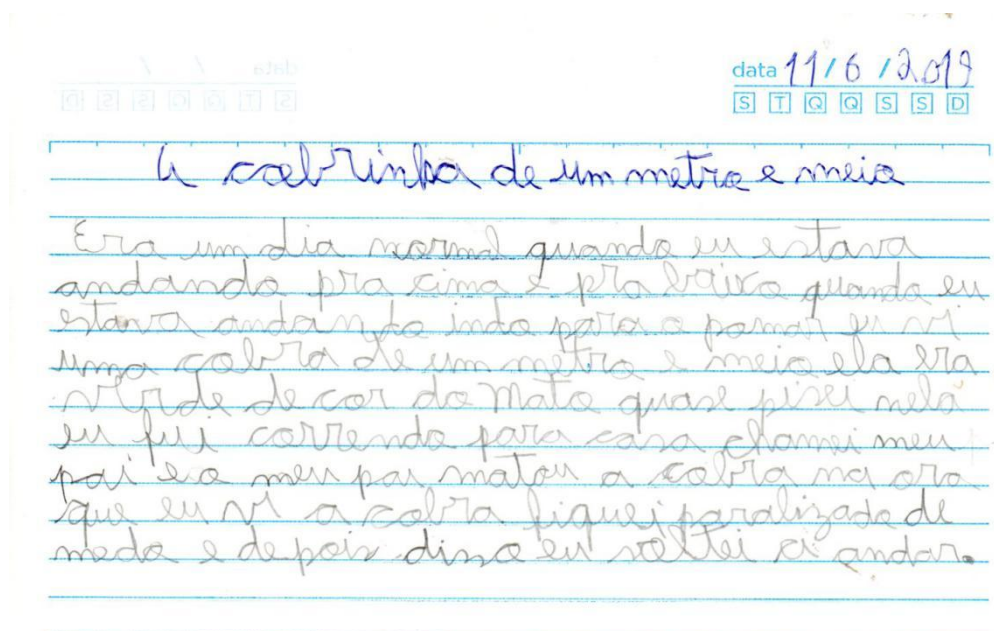 data 11/6/2019
S T Q Q S S D
A cobrinha de um metro e meio
Era um dia normal quando eu estava
andando pra cima e pra baixo quando eu
estava andando indo para o pomar eu vi
uma cobra de um metro e meio ela era
verde de cor do mato quase pisei nela
eu fui correndo para casa chamei meu
pai e o meu pai matou a cobra na ora
que eu vi a cobra fiquei paralizado de
medo e depois disso eu voltei a andar.